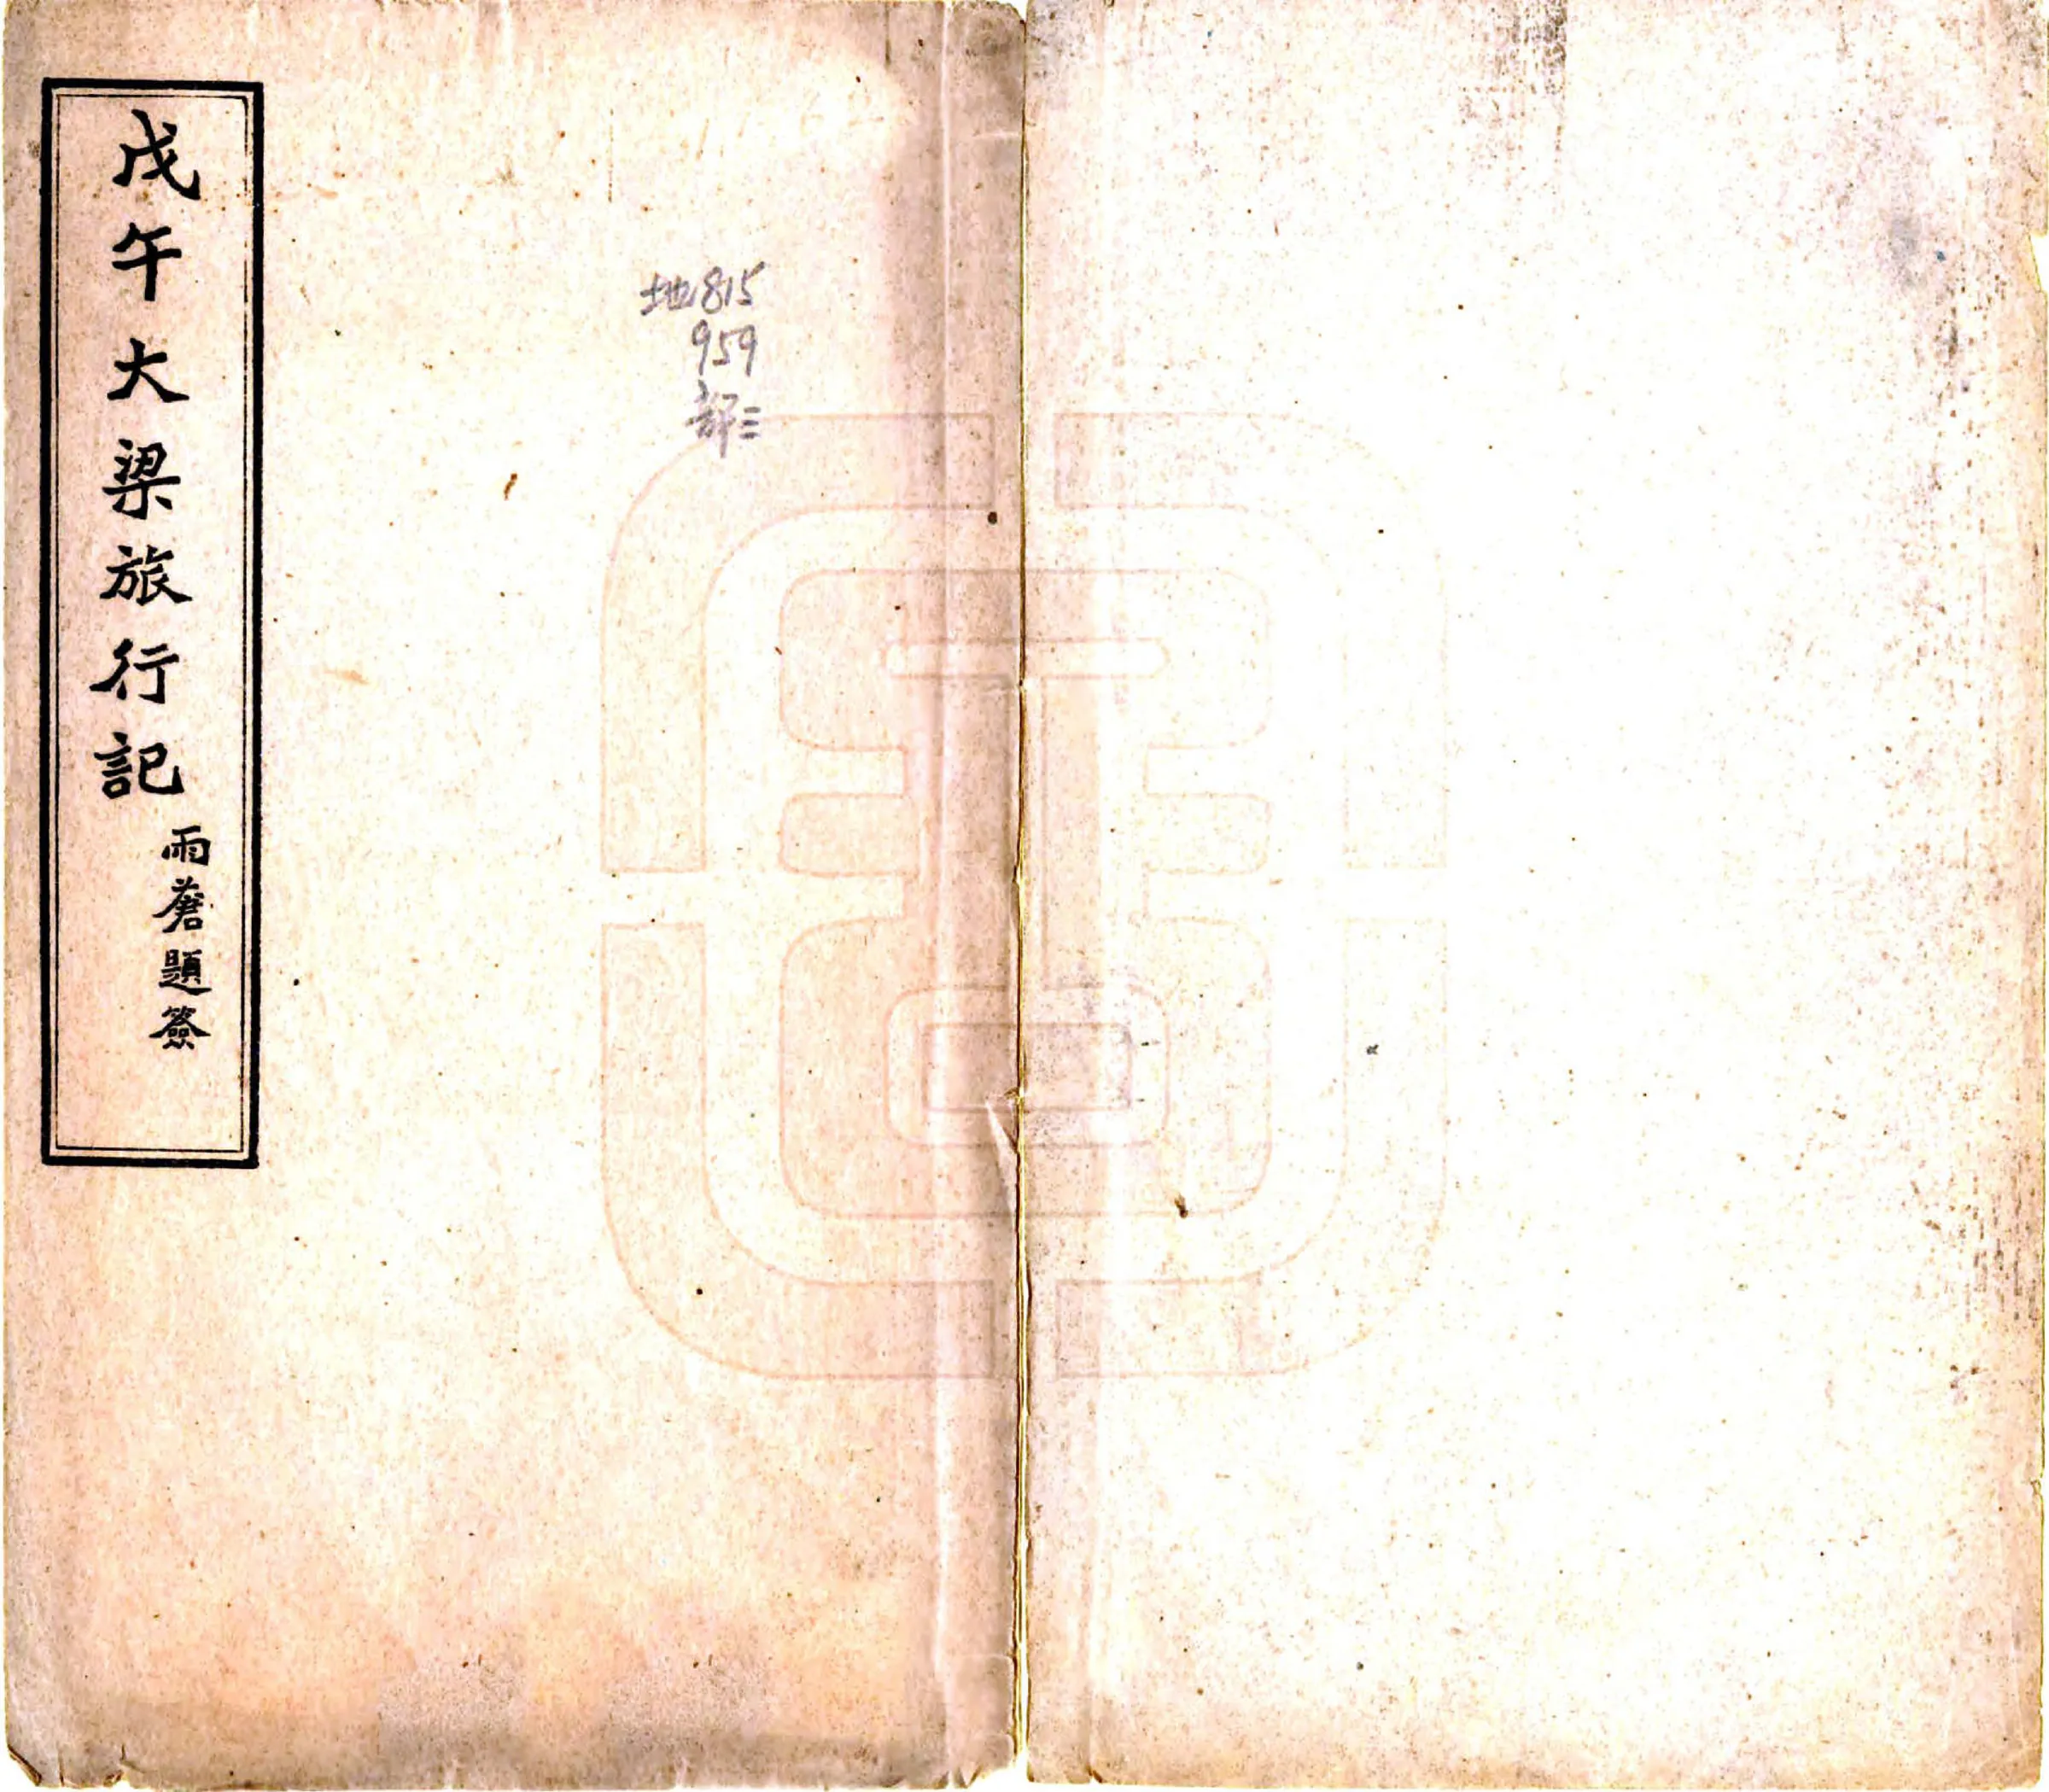 戊午大梁旅行記
雨蒼題簽
地815
959
部三